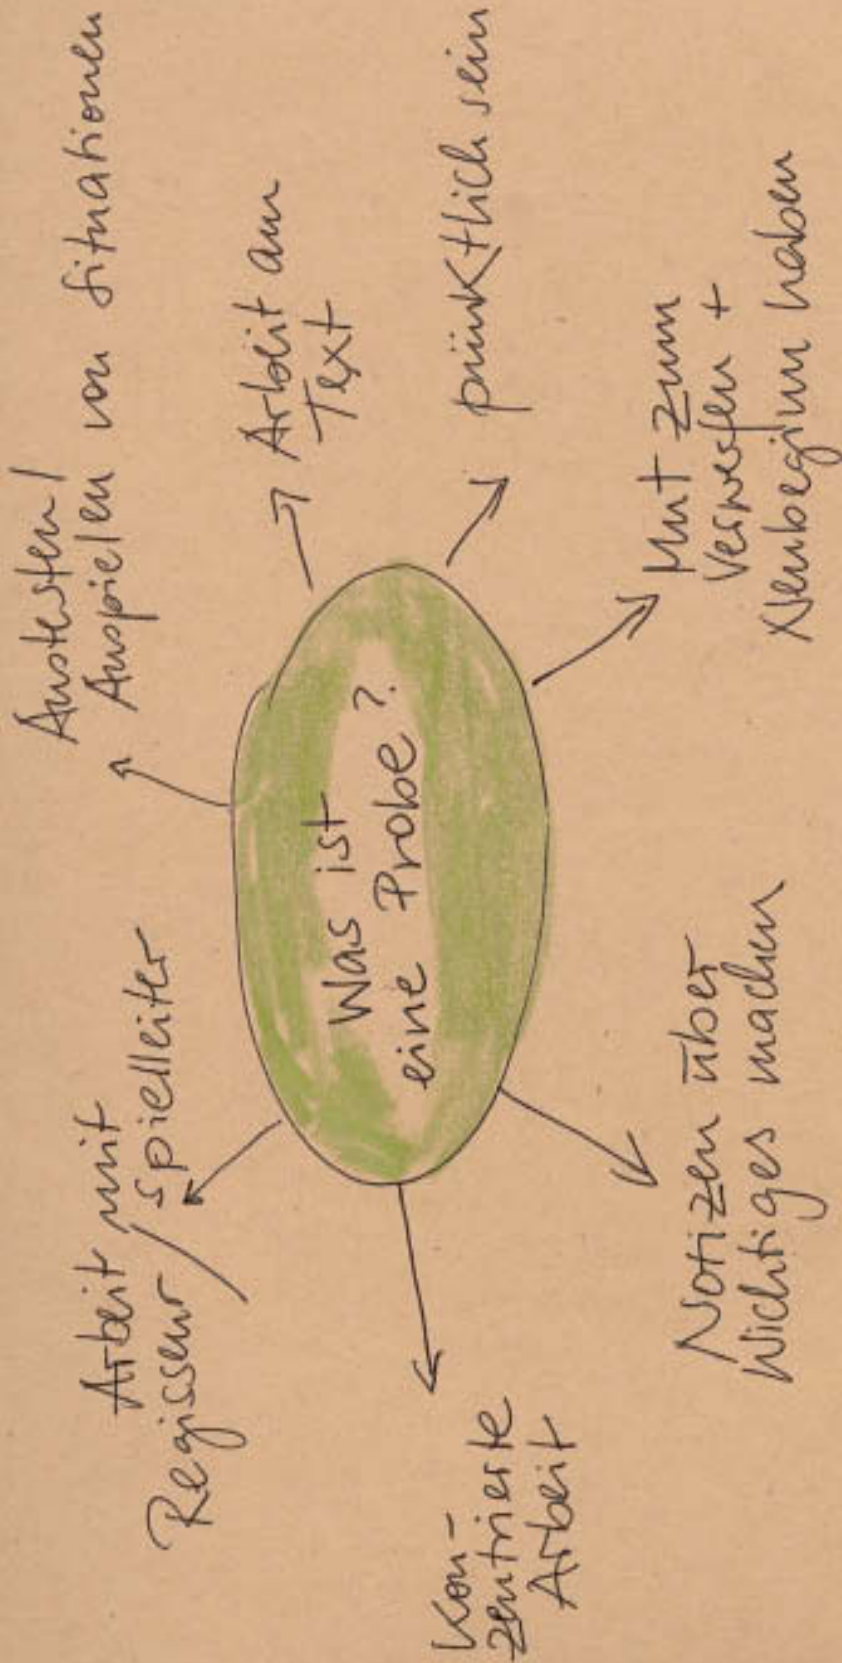 Was ist
eine Probe?
Arbeit mit
Regisseur / Spielleiter
Austesten /
Ausspielen von Situationen
Arbeit am
Text
pünktlich sein
Mut zum
Verwerfen +
Neubeginn haben
Notizen über
Wichtiges machen
Kon-
zentrierte
Arbeit